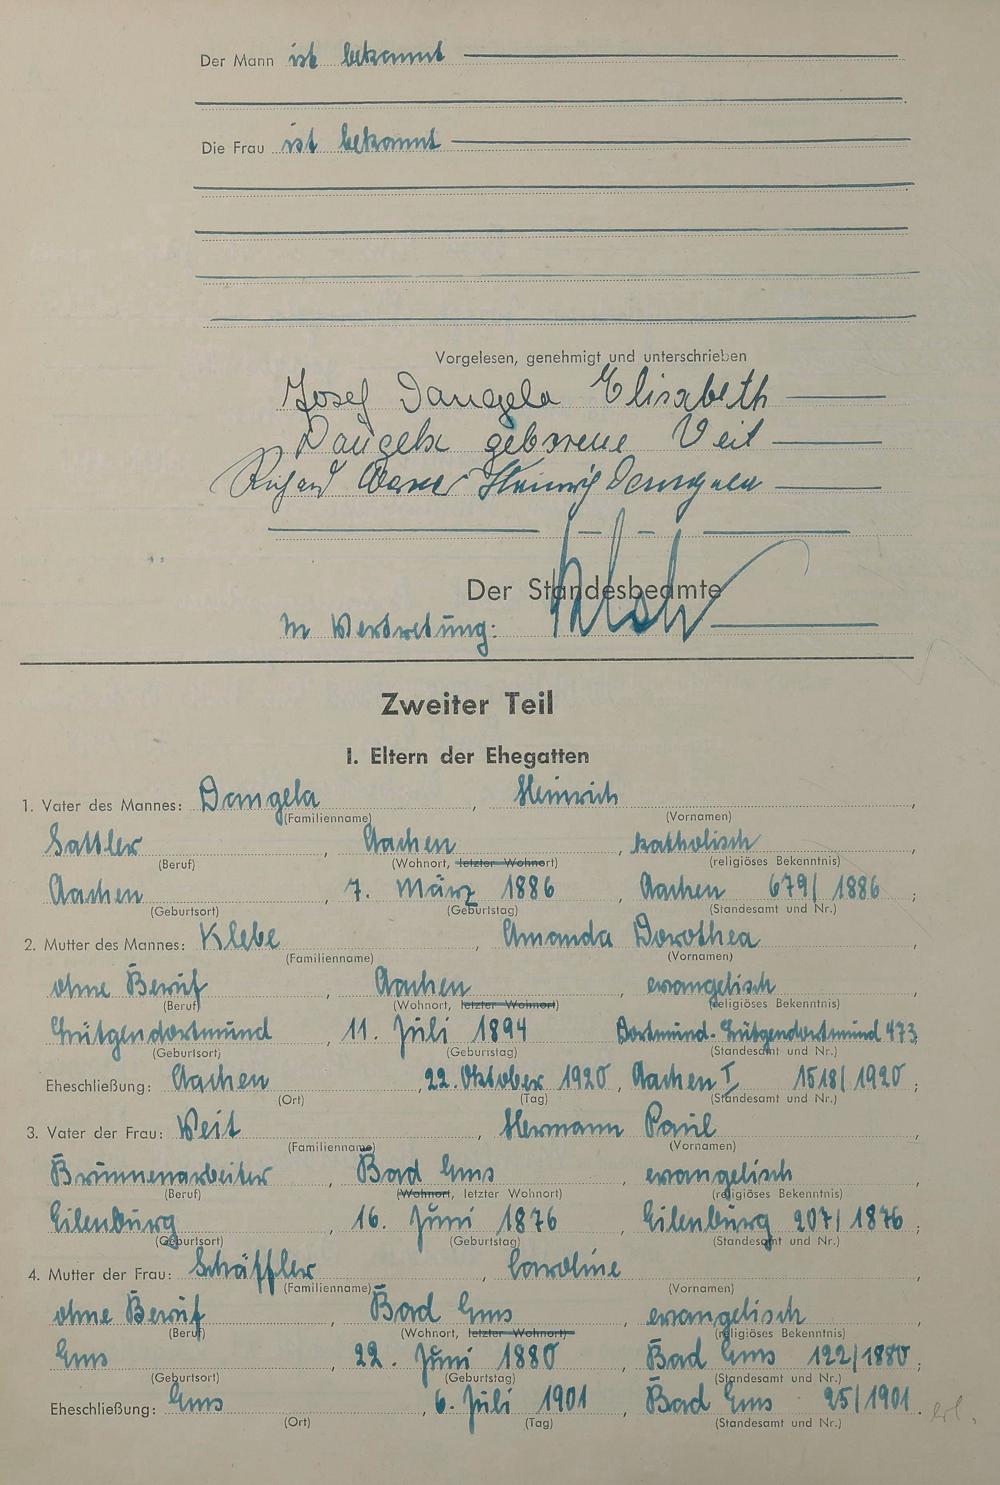 Der Mann ist bekannt
Die Frau ist bekannt
Vorgelesen, genehmigt und unterschrieben
Josef Dangela Elisabeth
Dangela geborene Veit
Richard Werner Heinrich Dangela
Der Standesbeamte
In Vertretung:
Zweiter Teil
I. Eltern der Ehegatten
1. Vater des Mannes: Dangela, Heinrich,
(Familienname) (Vornamen)
Sattler, Aachen, katholisch
(Beruf) (Wohnort, letzter Wohnort) (religiöses Bekenntnis)
Aachen, 7. März 1886, Aachen 679/1886;
(Geburtsort) (Geburtstag) (Standesamt und Nr.)
2. Mutter des Mannes: Klebe, Amanda Dorothea,
(Familienname) (Vornamen)
ohne Beruf, Aachen, evangelisch,
(Beruf) (Wohnort, letzter Wohnort) (religiöses Bekenntnis)
Lütgendortmund, 11. Juli 1894 Dortmund-Lütgendortmund 473
(Geburtsort) (Geburtstag) (Standesamt und Nr.)
Eheschließung: Aachen, 22. Oktober 1920, Aachen I 1518/1920;
(Ort) (Tag) (Standesamt und Nr.)
3. Vater der Frau: Veit, Hermann Paul,
(Familienname) (Vornamen)
Brunnenarbeiter, Bad Ems, evangelisch,
(Beruf) (Wohnort, letzter Wohnort) (religiöses Bekenntnis)
Eilenburg, 16. Juni 1876, Eilenburg 207/1876;
(Geburtsort) (Geburtstag) (Standesamt und Nr.)
4. Mutter der Frau: Schäffler, Caroline,
(Familienname) (Vornamen)
ohne Beruf, Bad Ems, evangelisch,
(Beruf) (Wohnort, letzter Wohnort) (religiöses Bekenntnis)
Ems, 22. Juni 1880, Bad Ems 122/1880;
(Geburtsort) (Geburtstag) (Standesamt und Nr.)
Eheschließung: Ems, 6. Juli 1901, Bad Ems 25/1901.
(Ort) (Tag) (Standesamt und Nr.)